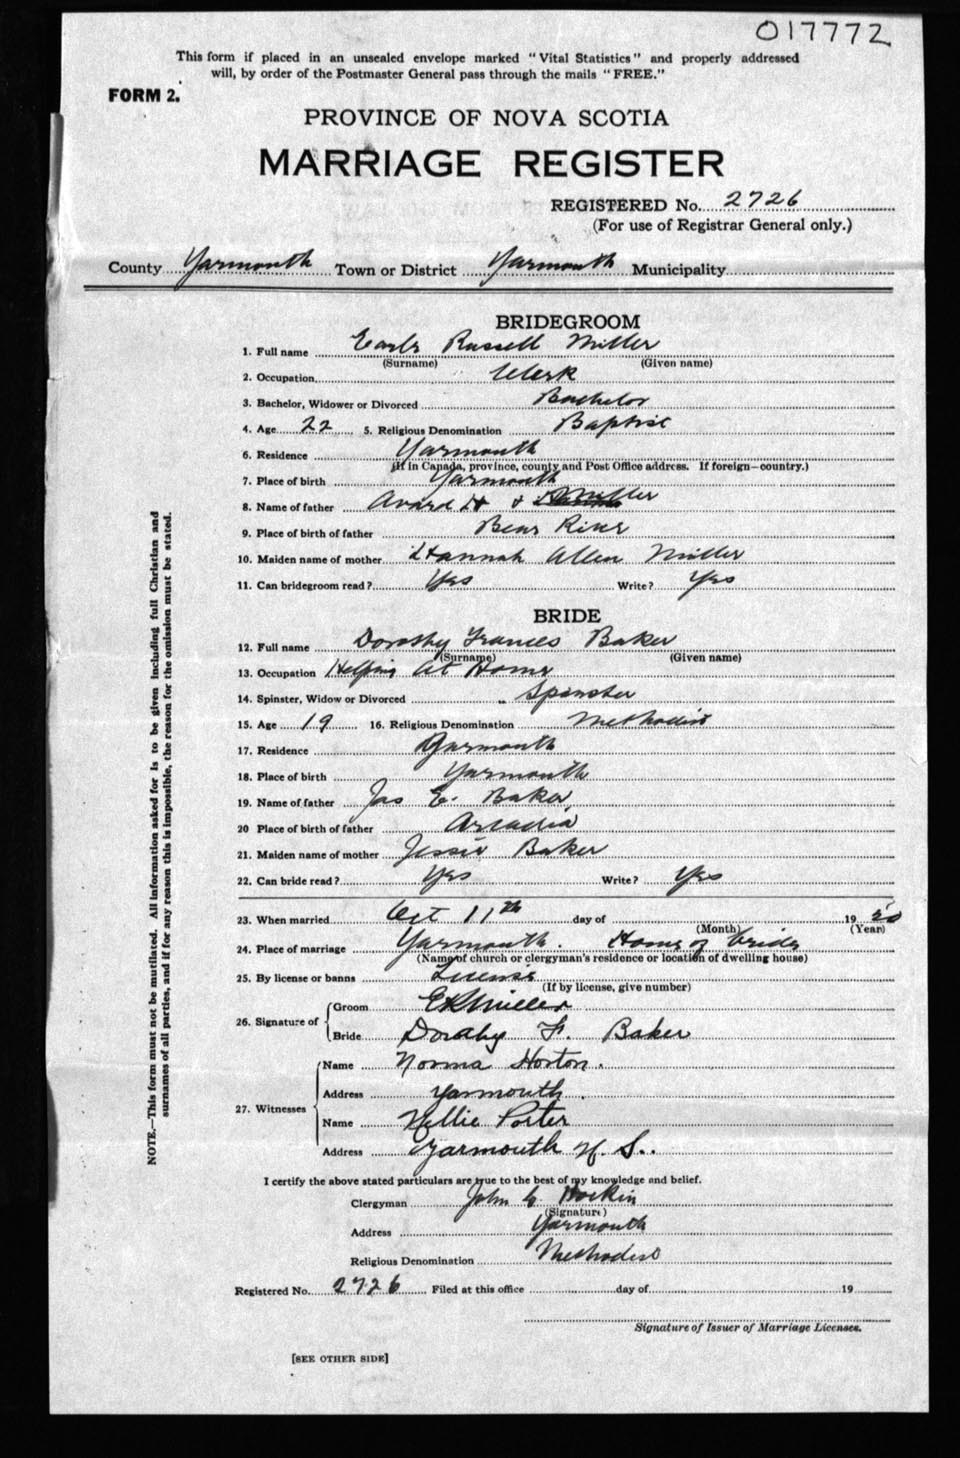 017772
This form if placed in an unsealed envelope marked "Vital Statistics" and properly addressed
will, by order of the Postmaster General pass through the mails "FREE."
FORM 2.
PROVINCE OF NOVA SCOTIA
MARRIAGE REGISTER
REGISTERED No. 2726
(For use of Registrar General only.)
County Yarmouth Town or District Yarmouth Municipality
BRIDEGROOM
1. Full name Russell Miller
(Surname) (Given name)
2. Occupation Clerk
3. Bachelor, Widower or Divorced Bachelor
4. Age 22 5. Religious Denomination Baptist
6. Residence Yarmouth
(If in Canada, province, county and Post Office address. If foreign—country.)
7. Place of birth Yarmouth
8. Name of father Avard H Miller
9. Place of birth of father Bear River
10. Maiden name of mother Hannah Allen Miller
11. Can bridegroom read? Yes Write? Yes
BRIDE
12. Full name Dorothy Frances Baker
(Surname) (Given name)
13. Occupation Helping At Home
14. Spinster, Widow or Divorced Spinster
15. Age 19 16. Religious Denomination Methodist
17. Residence Yarmouth
18. Place of birth Yarmouth
19. Name of father Jas E. Baker
20 Place of birth of father Arcadia
21. Maiden name of mother Jessie Baker
22. Can bride read? Yes Write? Yes
23. When married Oct 11th day of 1920
(Month) (Year)
24. Place of marriage Yarmouth. Home of bride
(Name of church or clergyman's residence or location of dwelling house)
25. By license or banns License
(If by license, give number)
26. Signature of
Groom E R Miller
Bride Dorothy F. Baker
27. Witnesses
Name Norma Horton.
Address Yarmouth.
Name Nellie Porter
Address Yarmouth N. S..
I certify the above stated particulars are true to the best of my knowledge and belief.
Clergyman John C. Hockin
(Signature)
Address Yarmouth
Religious Denomination Methodist
Registered No. 2726 Filed at this office day of 19
Signature of Issuer of Marriage Licenses.
[SEE OTHER SIDE]
NOTE.—This form must not be mutilated. All information asked for is to be given including full Christian and
surnames of all parties, and if for any reason this is impossible, the reason for the omission must be stated.